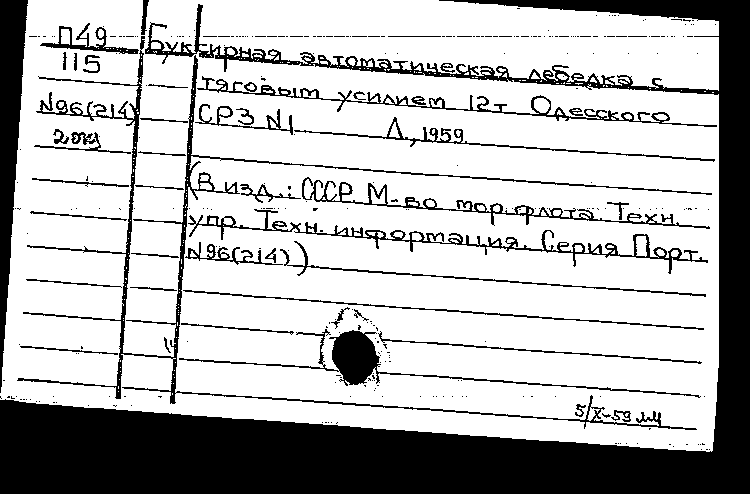 П49
115
N96(214)
2 экз
Буксирная автоматическая лебедка с
тяговым усилием 12т Одесского
СРЗ N1 Л., 1959.
(В изд.: СССР. М-во мор. флота. Техн.
упр. Техн. информация. Серия Порт.
N96(214)).
5/X-59